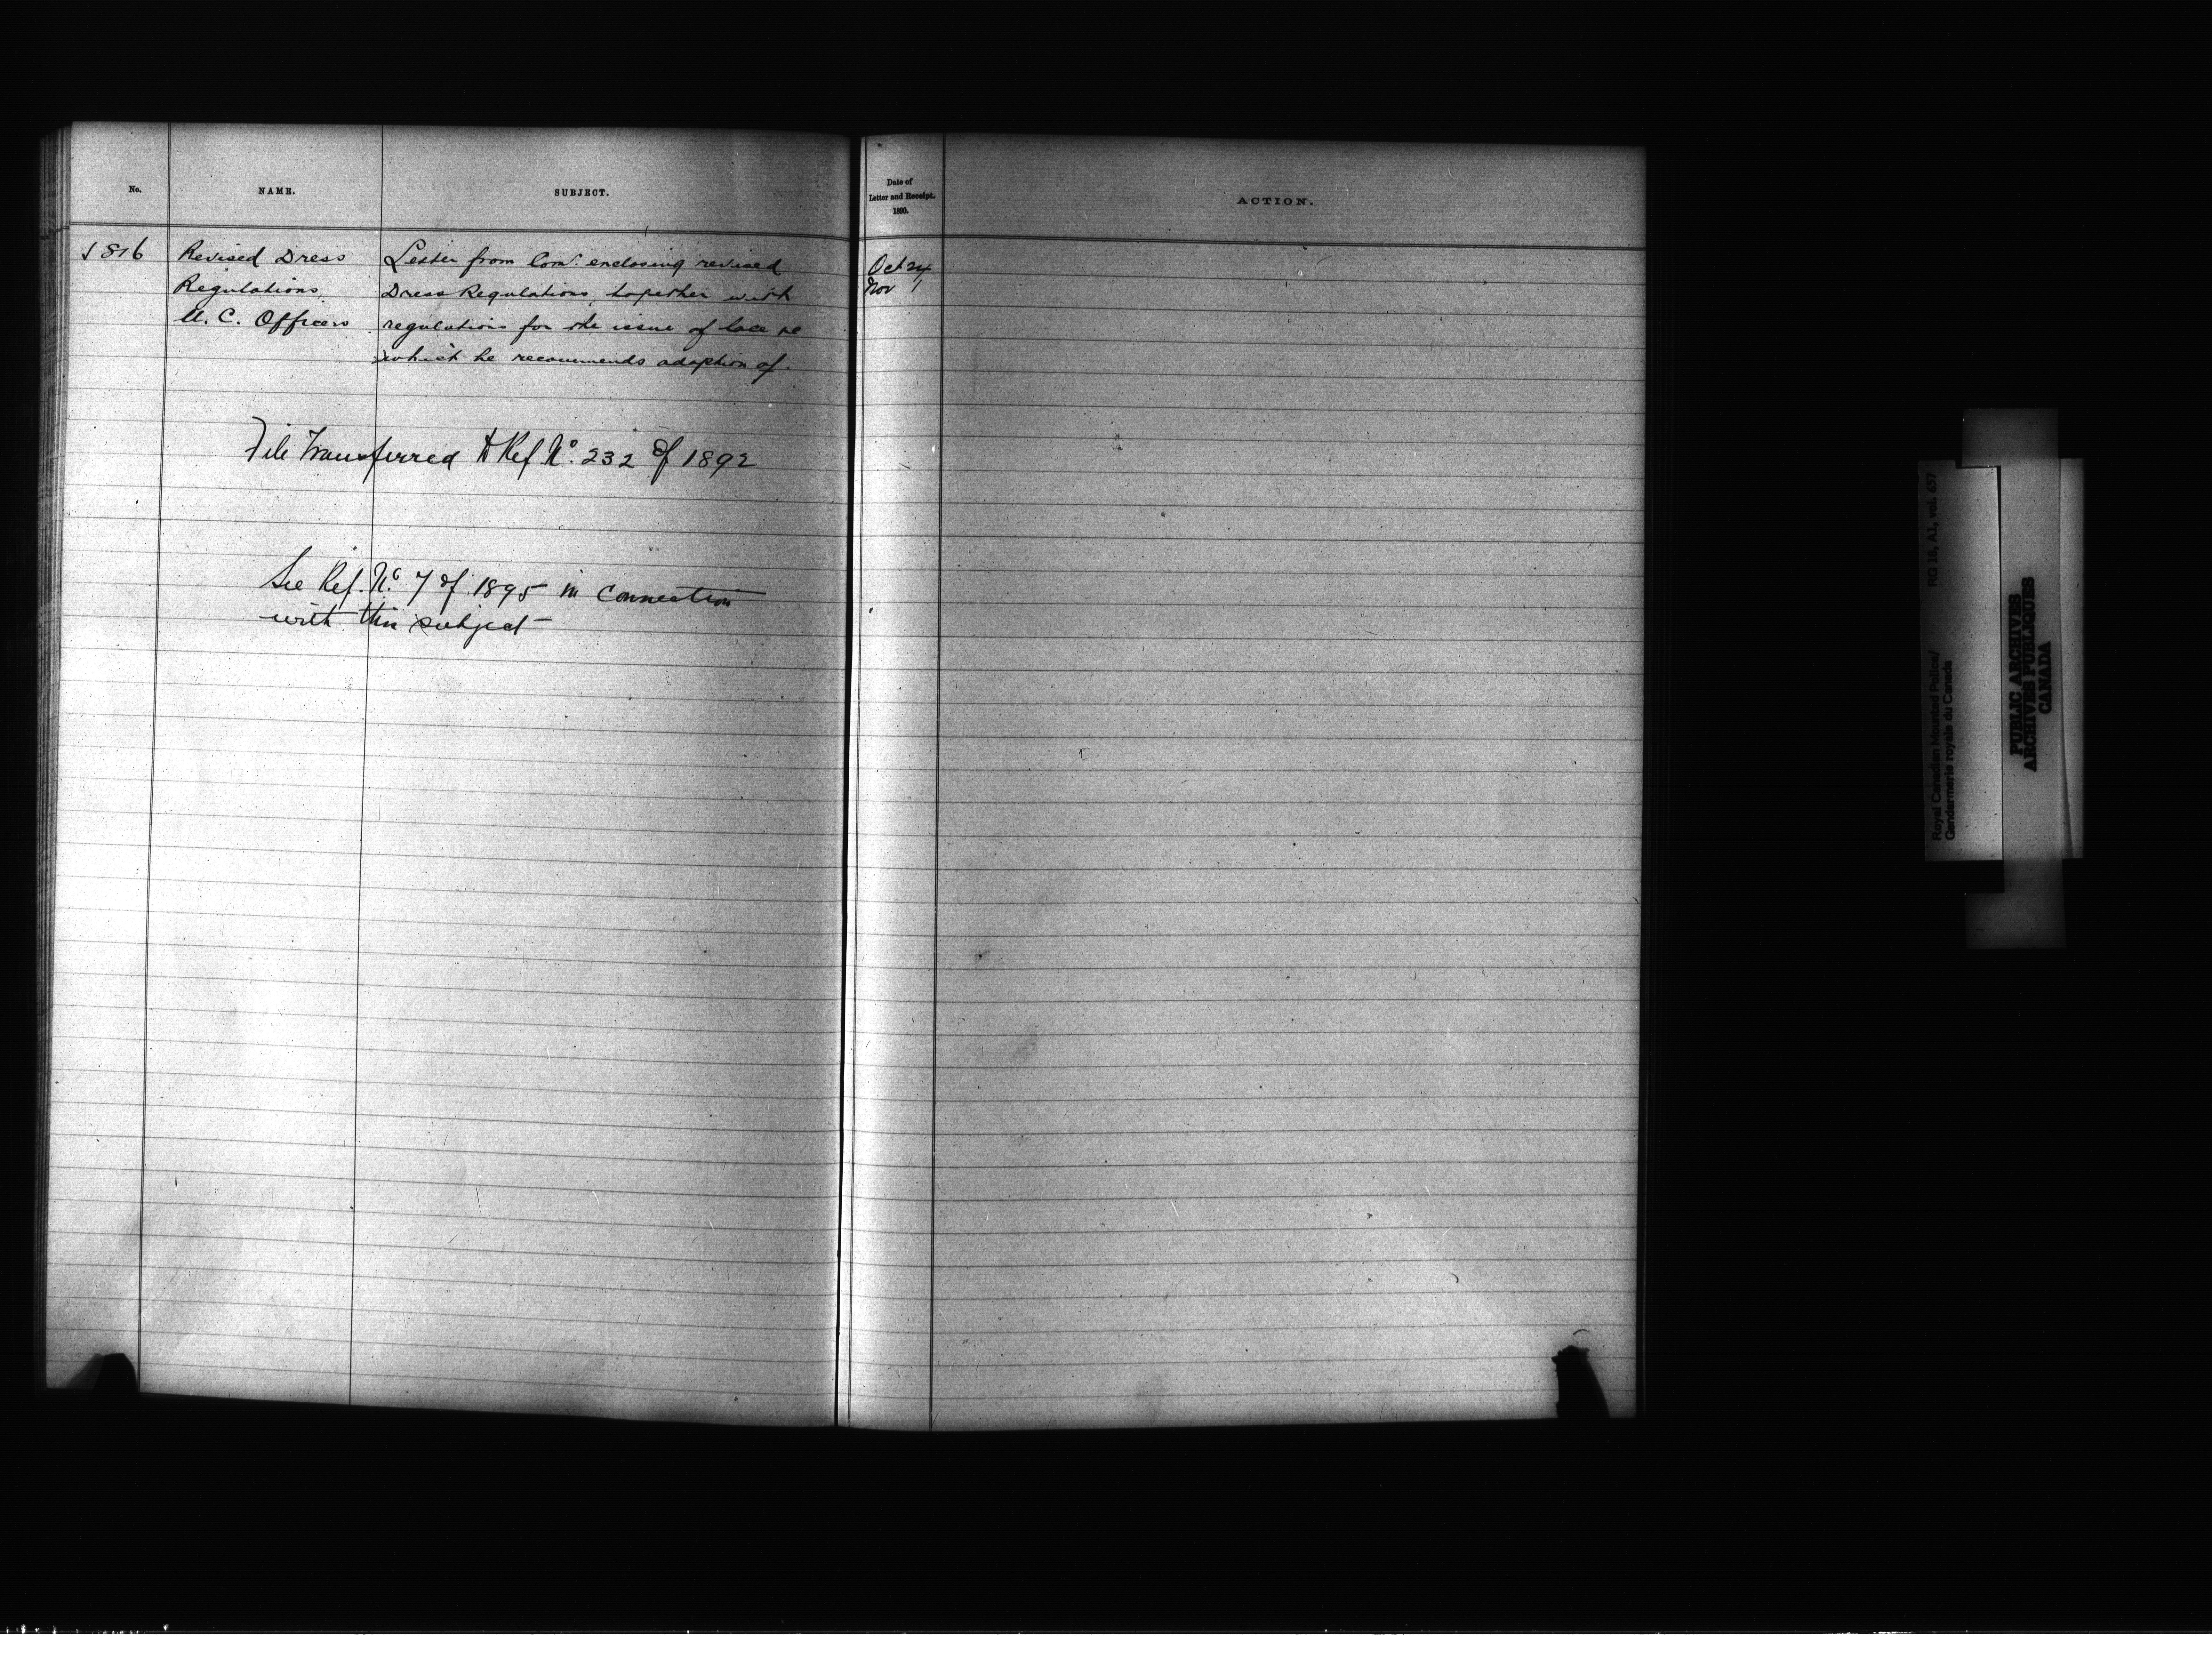 No.
NAME.
SUBJECT.
Date of
Letter and Receipt.
1890.
ACTION.
816
Revised Dress
Regulations,
N. C. Officers
Letter from Comr. enclosing revised
Dress Regulations, together with
regulations for the issue of lace &c
which he recommends adoption of.
Oct 24
Nov 1
File Transferred to Ref No. 232 of 1892
See Ref. No. 7 of 1895 in connection
with this subject
RG 18, A1, vol. 637
Royal Canadian Mounted Police/
Gendarmerie royale du Canada
PUBLIC ARCHIVES
ARCHIVES PUBLIQUES
CANADA